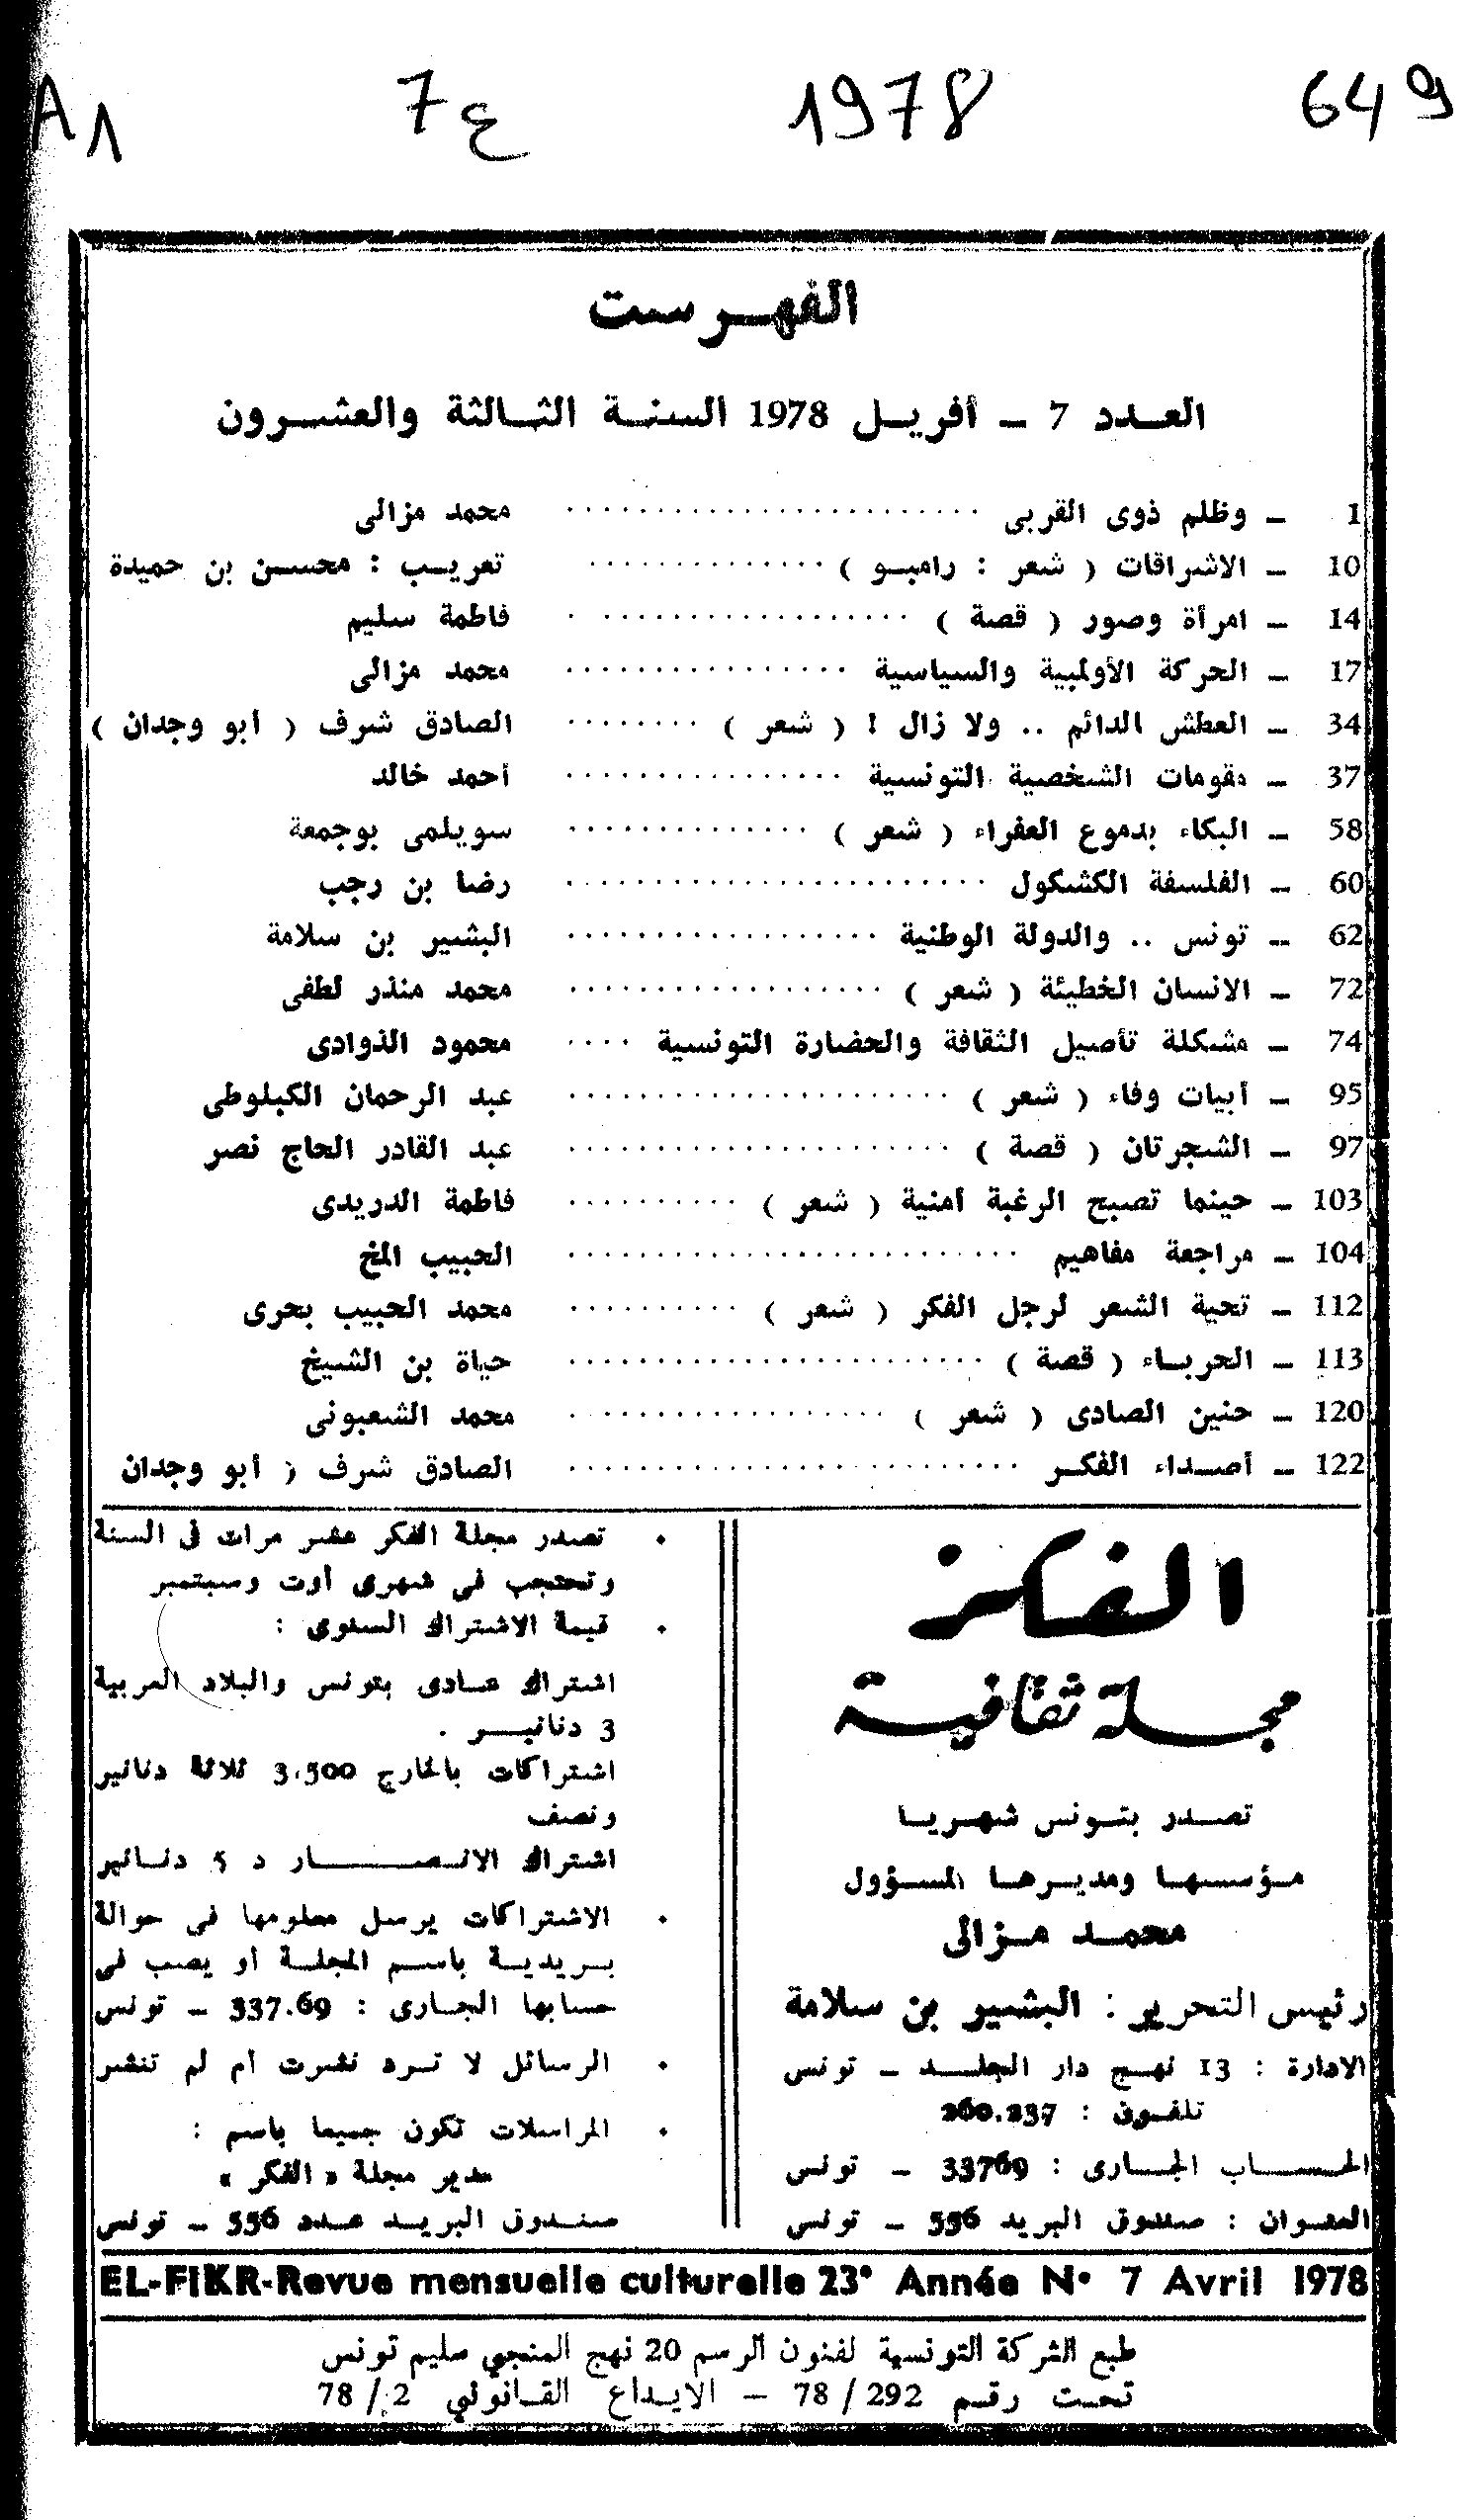 A1 7ع 1978 649
الفهرست
العدد 7 – أفريل 1978 السنة الثالثة والعشرون
1 – وظلم ذوى القربى ........ محمد مزالى
10 – الاشراقات ( شعر : رامبو ) ........ تعريب : محسن بن حميدة
14 – امرأة وصور ( قصة ) ........ فاطمة سليم
17 – الحركة الأولمبية والسياسية ........ محمد مزالى
34 – العطش الدائم .. ولا زال ! ( شعر ) ........ الصادق شرف ( أبو وجدان )
37 – مقومات الشخصية التونسية ........ أحمد خالد
58 – البكاء بدموع العفراء ( شعر ) ........ سويلمى بوجمعة
60 – الفلسفة الكشكول ........ رضا بن رجب
62 – تونس .. والدولة الوطنية ........ البشير بن سلامة
72 – الانسان الخطيئة ( شعر ) ........ محمد منذر لطفى
74 – مشكلة تأصيل الثقافة والحضارة التونسية .... محمود الذوادى
95 – أبيات وفاء ( شعر ) ........ عبد الرحمان الكبلوطى
97 – الشجرتان ( قصة ) ........ عبد القادر الحاج نصر
103 – حينما تصبح الرغبة أمنية ( شعر ) ........ فاطمة الدريدى
104 – مراجعة مفاهيم ........ الحبيب المخ
112 – تحية الشعر لرجل الفكر ( شعر ) ........ محمد الحبيب بحرى
113 – الحرباء ( قصة ) ........ حياة بن الشيخ
120 – حنين الصادى ( شعر ) ........ محمد الشعبونى
122 – أصداء الفكر ........ الصادق شرف ( أبو وجدان
الفكر
مجلة ثقافية
تصدر بتونس شهريا
مؤسسها ومديرها المسؤول
محمد مزالى
رئيس التحرير : البشير بن سلامة
الادارة : 13 نهج دار الجلد – تونس
تلفون : 260.237
الحساب الجارى : 33769 – تونس
العنوان : صندوق البريد 556 – تونس
• تصدر مجلة الفكر عشر مرات فى السنة
وتحتجب فى شهرى أوت وسبتمبر
• قيمة الاشتراك السنوى :
اشتراك عادى بتونس والبلاد العربية
3 دنانير .
اشتراكات بالخارج 3،500 ثلاثة دنانير
ونصف
اشتراك الانصار د 5 دنانير
• الاشتراكات يرسل معلومها فى حوالة
بريدية باسم المجلة أو يصب فى
حسابها الجارى : 337.69 – تونس
• الرسائل لا ترد نشرت أم لم تنشر
• المراسلات تكون جميعا باسم :
مدير مجلة « الفكر »
صندوق البريد عدد 556 – تونس
EL-FIKR-Revue mensuelle culturelle 23° Année N° 7 Avril 1978
طبع الشركة التونسية لفنون الرسم 20 نهج المنجي سليم تونس
تحت رقم 292 / 78 – الايداع القانوني 2 / 78